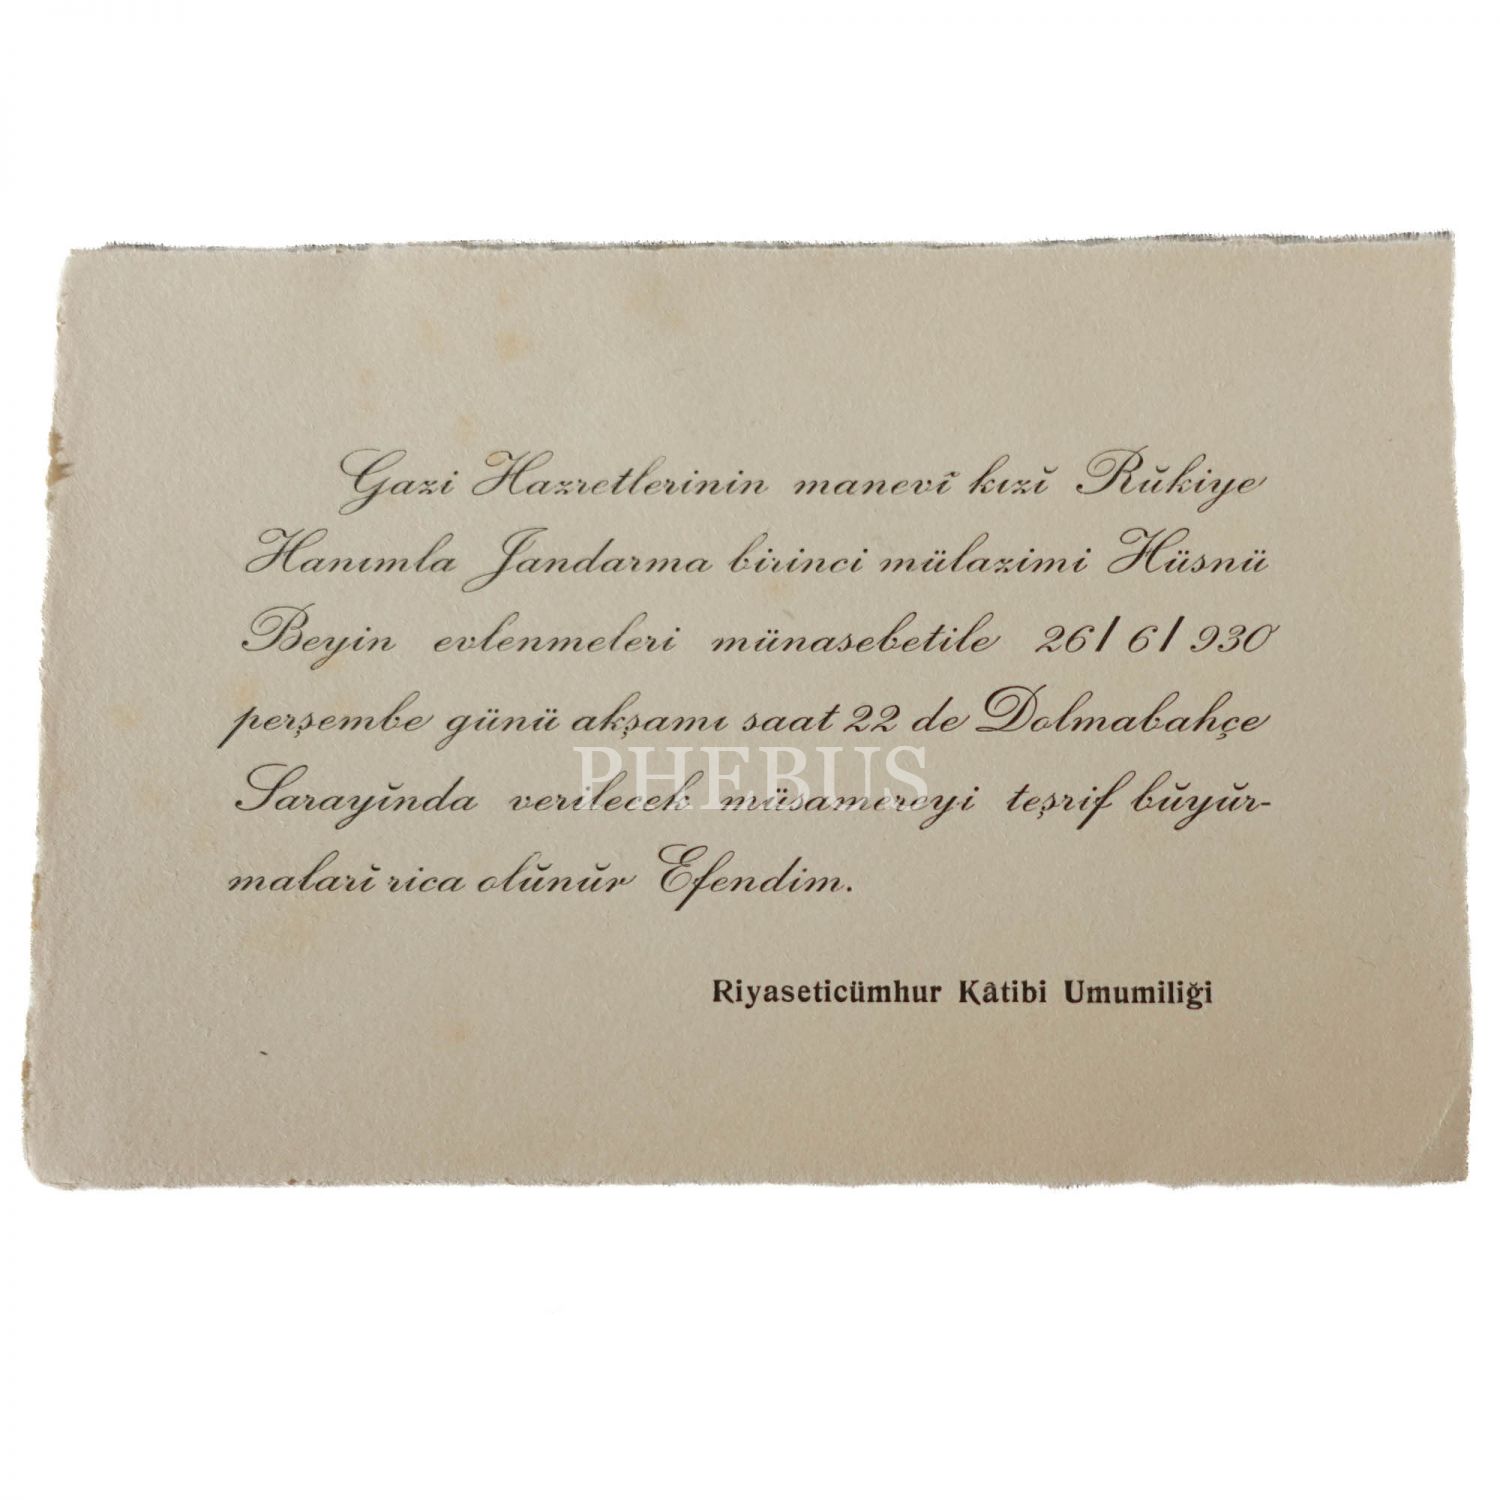 Gazi Hazretlerinin manevĭ kızĭ Rŭkiye
Hanımla Jandarma birinci mülazimi Hüsnü
Beyin evlenmeleri münasebetile 26/6/930
perşembe günü akşamı saat 22 de Dolmabahçe
Sarayĭnda verilecek müsamereyi teşrif bŭyŭr-
malarĭ rica olŭnŭr Efendim.
Riyaseticümhur Kâtibi Umumiliği
PHEBUS